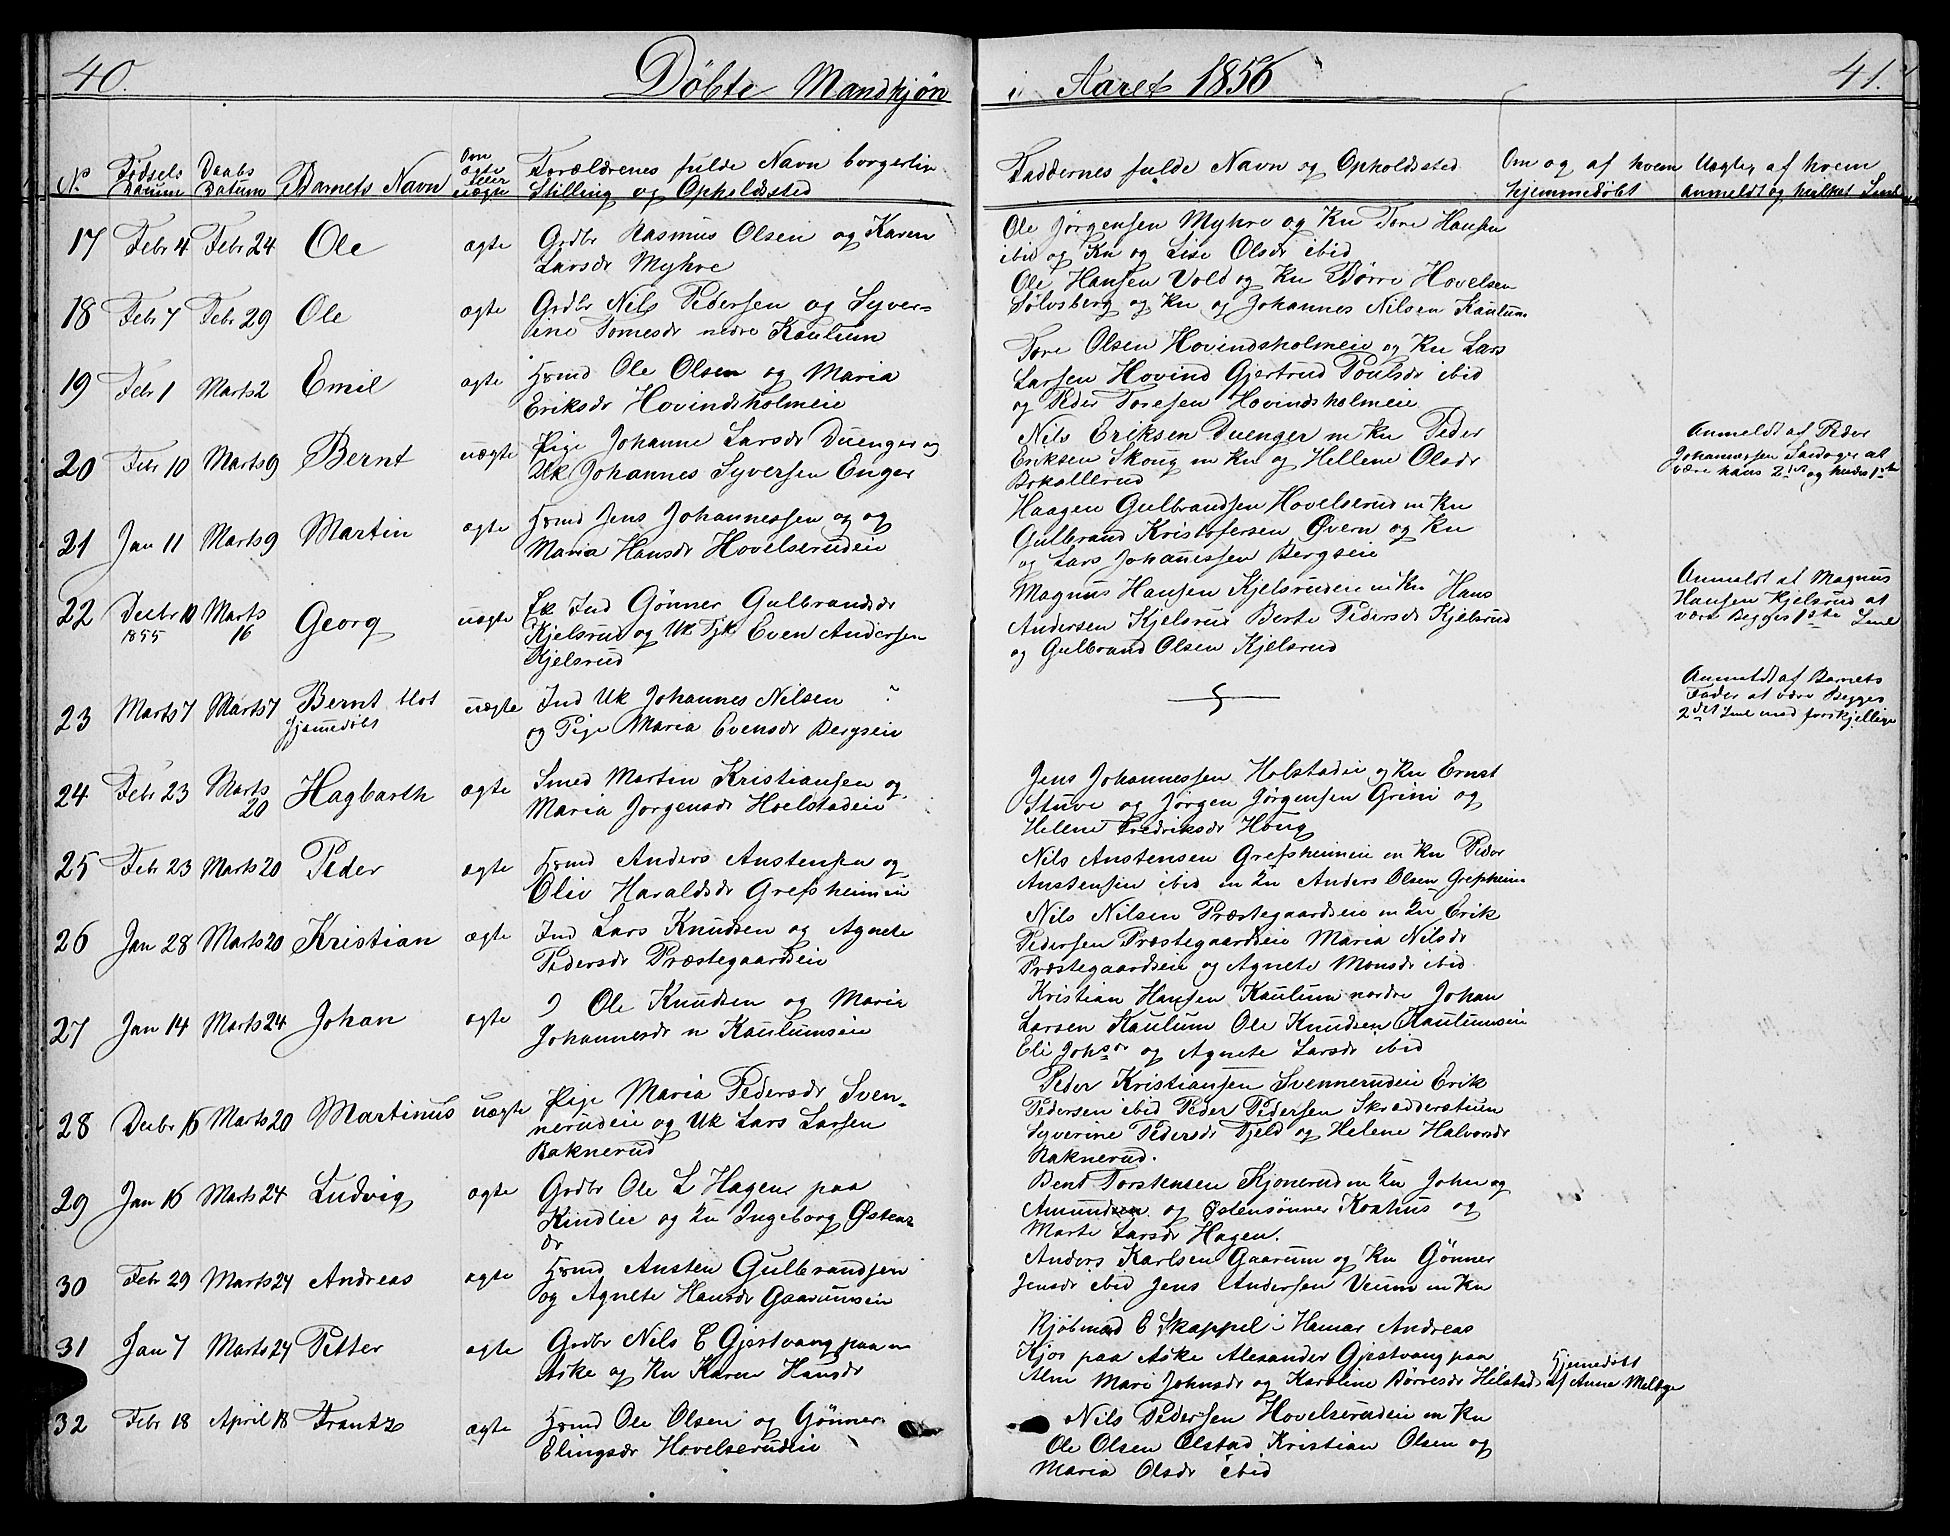 40.
Döbte Mandkjön
i Aaret 1856
41.
No Födsels Datum Daabs Datum Barnets Navn Om ægte eller uægte Forældrenes fulde Navn borgerlin Stilling og Opholdssted
Faddernes fulde Navn og Opholdssted Om og af hvem hjemmedöbt Uægte, af hvem anmeldt og hvilket Leul
17 Febr 4 Febr 24 Ole ægte Grdbr Rasmus Olsen og Karen
Larsdr Myhre
Ole Jörgensen Myhre og Kn Tore Hansen
ibid og Kn og Lise Olsdr ibid
18 Febr 7 Febr 29 Ole ægte Grdbr Nils Pedersen og Syver-
ine Tomesdr nedre Kaulum
Ole Hansen Vold og Kn Börre Hovelsen
Sölvsberg og Kn og Johannes Nilsen Kaulum
19 Febr 1 Marts 2 Emil ægte Hsmd Ole Olsen og Maria
Eriksdr Hovindsholmeie
Tore Olsen Hovindsholmeie og Kn Lars
Larsen Hovind Gjertrud Poulsdr ibid
og Peder Toresen Hovindsholmeie
20 Febr 10 Marts 9 Bernt uægte Pige Johanne Larsdr Duenger og
Uk Johannes Syversen Enger
Nils Eriksen Duenger m Kn Peder
Eriksen Skoug m Kn og Hellene Olsdr
Anmeldt af Peder
Johannessen at
være hans 2det og hendes 1ste
21 Jan 11 Marts 9 Martin ægte Hsmd Jens Johannessen og og
Maria Hansdr Hovelserudeie
Haagen Gulbrandsen Hovelserud m Kn
Gulbrand Kristofersen Övern og Kn
og Lars Johanessen Bergseie
22 Decbr 10 1855 Marts 16 Georg uægte Fk Ind Gönner Gulbrandsdr
Kjelsrud og Uk Tjk Even Andersen
Kjelsrud
Magnus Hansen Kjelsrudeie m Kn Hans
Andersen Kjelsrud Berte Pedersdr Kjelsrud
og Gulbrand Olsen Kjelsrud
Anmeldt af Magnus
Hansen Kjelsrud at
være Begges 1ste Leul
23 Marts 7 Marts 7 Bernt blot
hjemmedöbt uægte Ind Uk Johannes Nilsen ?
og Pige Maria Evensdr Bergseie
Anmeldt af Barnets
Fader at være Begges
2det Leul med forskjellige
24 Febr 23 Marts 20 Hagbarth ægte Smed Martin Kristiansen og
Maria Jorgensdr Hoelstadeie
Jens Johannessen Holstadeie og Kn Ernst
Stuve og Jörgen Jörgensen Grini og
Helene Fredriksdr Houg
25 Febr 23 Marts 20 Peder ægte Hsmd Anders Anstensen og
Olie Haraldsdr Grefsheimeie
Nils Anstensen Grefsheimeie m Kn Peder
Anstensen ibid m Kn Anders Olsen Grefsheim
26 Jan 28 Marts 20 Kristian ægte Ind Lars Knudsen og Agnete
Pedersdr Præstegaardseie
Nils Nilsen Præstegaardseie m Kn Erik
Pedersen Præstegaardseie Maria Nilsdr
Præstegaardseie og Agnete Monsdr ibid
27 Jan 14 Marts 24 Johan ægte ) Ole Knudsen og Maria
Johannesdr n Kaulumseie
Kristian Hansen Kaulum nordre Johan
Larsen Kaulum Ole Knudsen Kaulumseie
Eli Johsdr og Agnete Larsdr ibid
28 Decbr 16 Marts 20 Martinus uægte Pige Maria Pedersdr Sven-
nerudeie og Uk Lars Larsen
Baknerud
Peder Kristiansen Svennerudeie Erik
Pedersen ibid Peder Pedersen Skrædderstuen
Syverine Pedersdr Fjeld og Helene Halvorsdr
Baknerud.
29 Jan 16 Marts 24 Ludvig ægte Grdbr Ole L Hagen paa
Kindlie og Kn Ingeborg Östens-
dr
Bent Torstensen Kjonerud m Kn John og
Amundsen og Östensönner Koxhus og
Marte Larsdr Hagen.
30 Febr 29 Marts 24 Andreas ægte Hsmd Ansten Gulbrandsen
og Agnete Hansdr Gaarumseie
Anders Karlsen Gaarum og Kn Gönner
Jensdr ibid Jens Andersen Veum m Kn
31 Jan 7 Marts 24 Petter ægte Grdbr Nils C Gjestvang paa
Aske og Kn Karen Hansdr
Kjöbmand C Skappel i Hamar Andreas
Kjos paa Aske Alexander Gjestvang paa
Alm Mari Johnsdr og Karoline Börresdr Hilstad
Hjemedöbt
af Anne Melbye
32 Febr 18 April 18 Frantz ægte Hsmd Ole Olsen og Gönner
Elingsdr Hovelserudeie
Nils Pedersen Hovelserudeie m Kn
Ole Olsen Olstad Kristian Olsen og
Maria Olsdr ibid